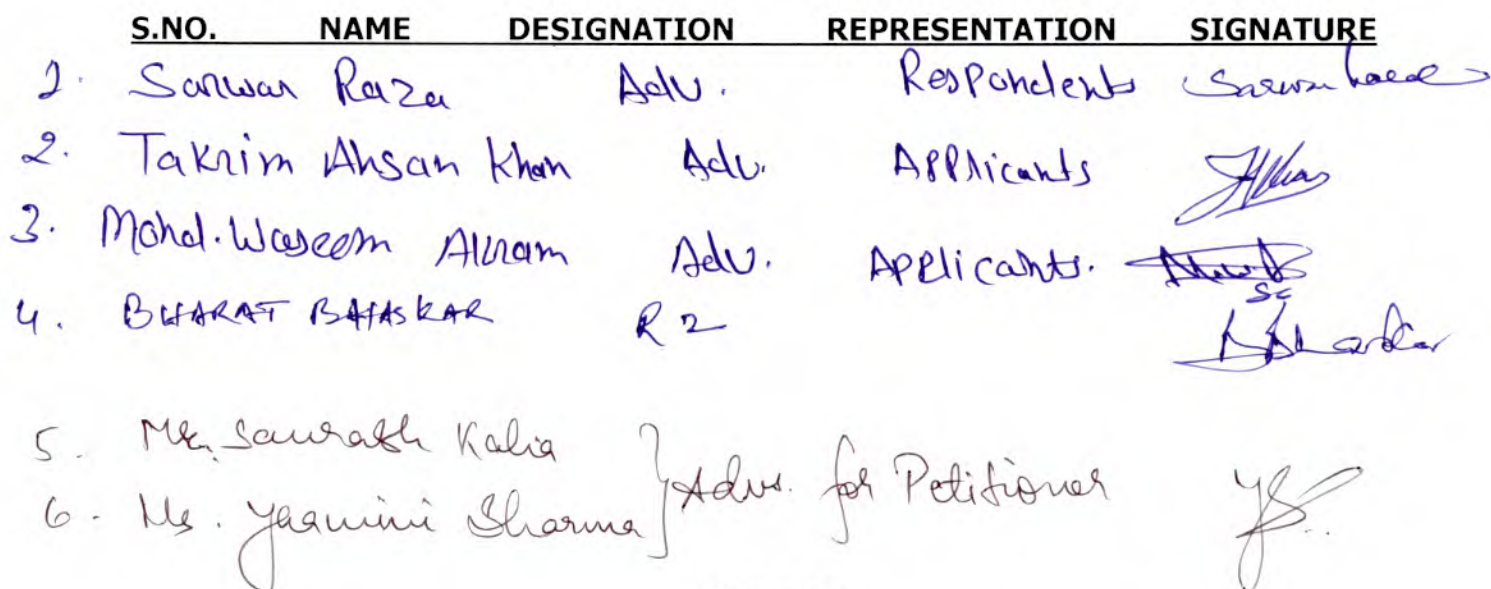 S.NO. NAME DESIGNATION REPRESENTATION SIGNATURE
1. Sarwar Raza Adv. Respondents
2. Takrim Ahsan Khan Adv. Applicants
3. Mohd. Waseem Akram Adv. Applicants.
4. BHARAT BHASKAR R2
5. Mr. Saurabh Kalia
} Advs. for Petitioner
6. Ms. Yaamini Sharma